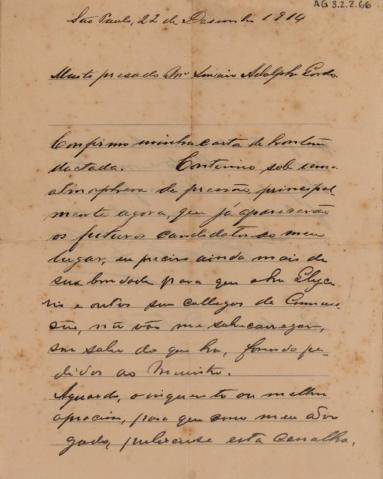 AG 3.2.2.66
São Paulo, 22 de Dezembro 1914
Muito presado Snr Senador Adolpho Gordo.
Confirmo minha carta de hontem
dactada. Continúo sob uma
atmosphera de pressão, principal
mente agora, que já appareceram
os futuros candidatos ao meu
lugar, eu preciso ainda mais de
sua bondade para que o Snr Glyce
rio e outros seus collegas de Commis
são, não vão me sobrecarregar,
sem saber do que ha, fazendo pe
didos ao Ministro.
Aguardo, o inquerito ou melhor
, para que com meu advo
gado, pulverise esta canalha.